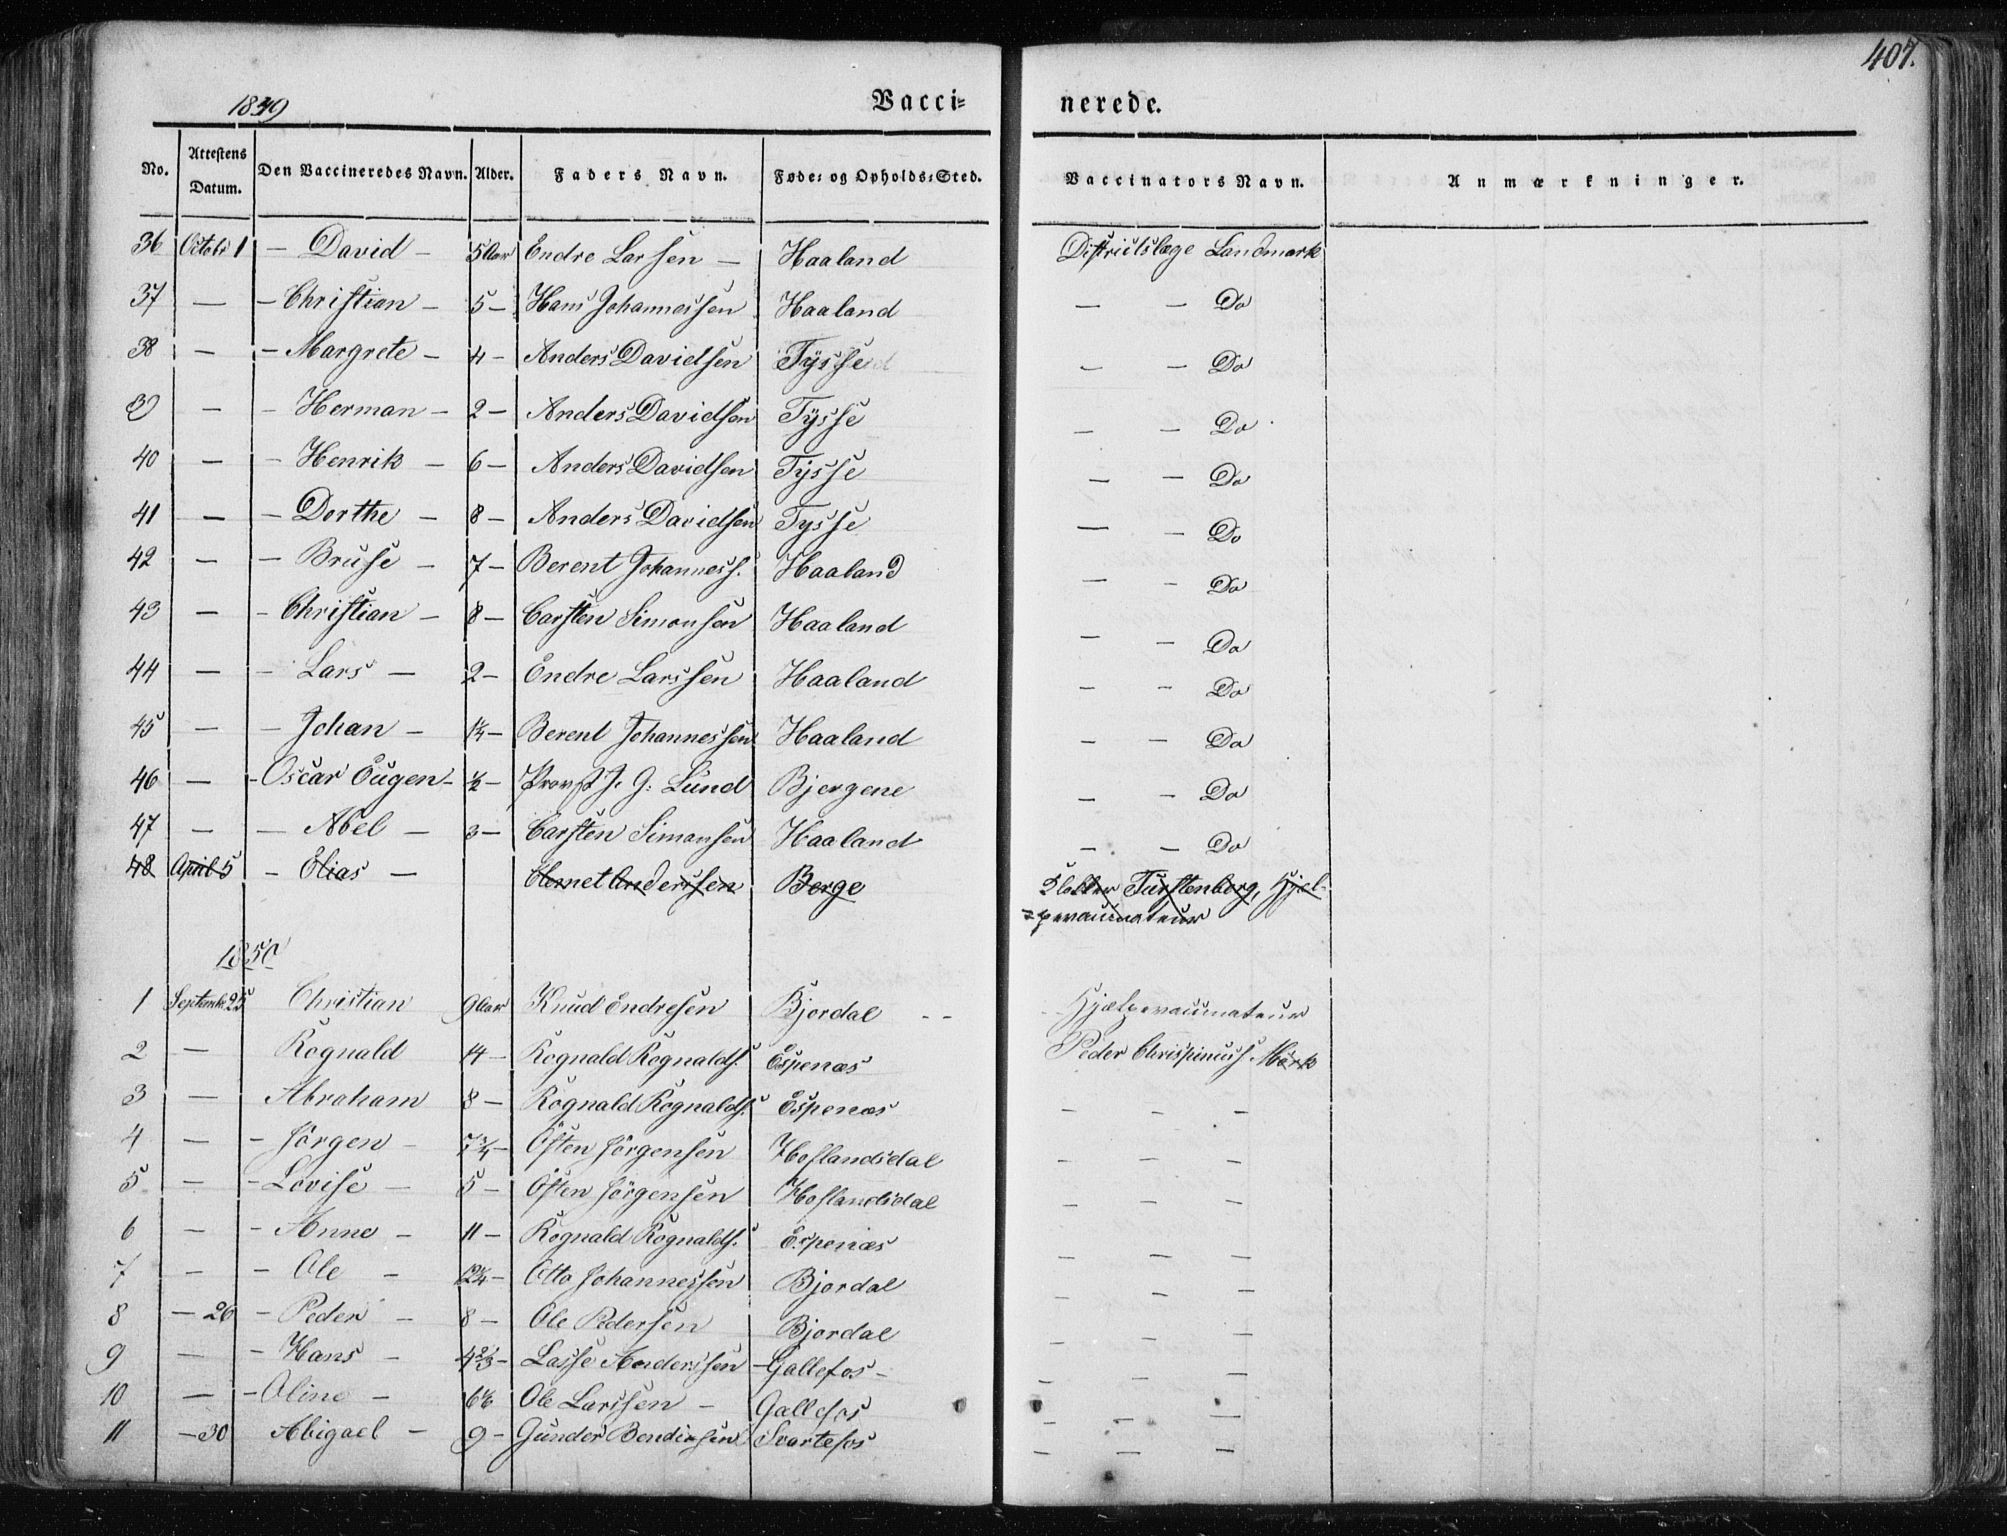 407.
1849
Vacci= nerede.
No. Attestens Datum. Den Vaccineredes Navn. Alder. Faders Navn. Føde= og Opholds=Sted. Vaccinators Navn. Anmærkninger.
36 Octobr 1 - David - 5 Aar Endre Larsen - Haaland Districtslæge Landmark
37 — - Christian - 5 - Hans Johannessen Haaland — — Do
38 — - Margrete - 4 - Anders Davidsen Tysse — — Do
39 — - Herman - 2 - Anders Davidsen Tysse — — Do
40 — - Henrik - 6 - Anders Davidsen Tysse — — Do
41 — - Dorthe - 8 - Anders Davidsen Tysse — — Do
42 — - Bruse - 7 - Berent Johanness. Haaland — — Do
43 — - Christian - 8 - Carsten Simonsen Haaland — — Do
44 — - Lars - 2 - Endre Larssen Haaland — — Do
45 — - Johan - 1¼ - Berent Johannessen Haaland — — Do
46 — - Oscar Eugen - ½ - Provst J. G. Lund Bjergene — — Do
47 — - Abel - 3 - Carsten Simonsen Haaland — — Do
48 April 5 - Elias - Clemet Anderssen Berge Klokker Fürstenberg, Hjel-
=pevaccinateur
1850
1 September 25 Christian 9 Aar Knud Endresen Bjordal - - Hjælpevaccinateur
2 — Rognald 14 - Rognald Rognalds. Espenæs Peder Chrispinuss. Mørk
3 — Abraham 8 - Rognald Rognalds. Espenæs — — —
4 — - Jörgen - 7¾ - Östen Jörgensen Hoflandsdal — — —
5 — - Lovise - 5 - Östen Jörgensen Hoflandsdal — — —
6 — - Anne - 11 - Rognald Rognalds. Espenæs — — —
7 — - Ole - 12¼ - Otto Johannessen Bjordal — — —
8 — 26 - Peder - 8 - Ole Pedersen Bjordal — — —
9 — - Hans - 4⅔ - Lasse Anderssen - Gallefos - — — —
10 — - Oline - 6½ Ole Larssen - Gallefos — — —
11 — 30 Abigael - 9 - Gunder Bendixsen Svartefos — — —